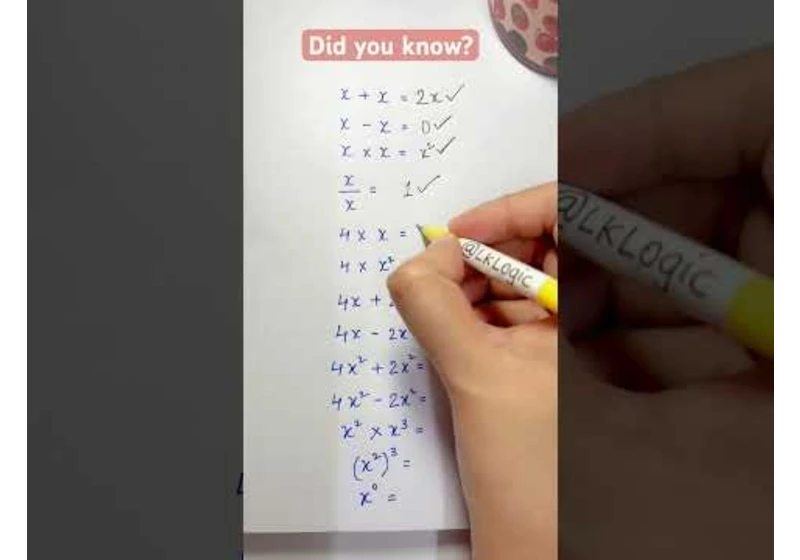 Did you know?
x + x = 2x ✓
x - x = 0 ✓
x × x = x² ✓
x/x = 1 ✓
4 × x =
4 × x²
4x +
4x - 2x
4x² + 2x² =
4x² - 2x² =
x² × x³ =
(x²)³ =
x⁰ =
@LKLogic
@LKLogic